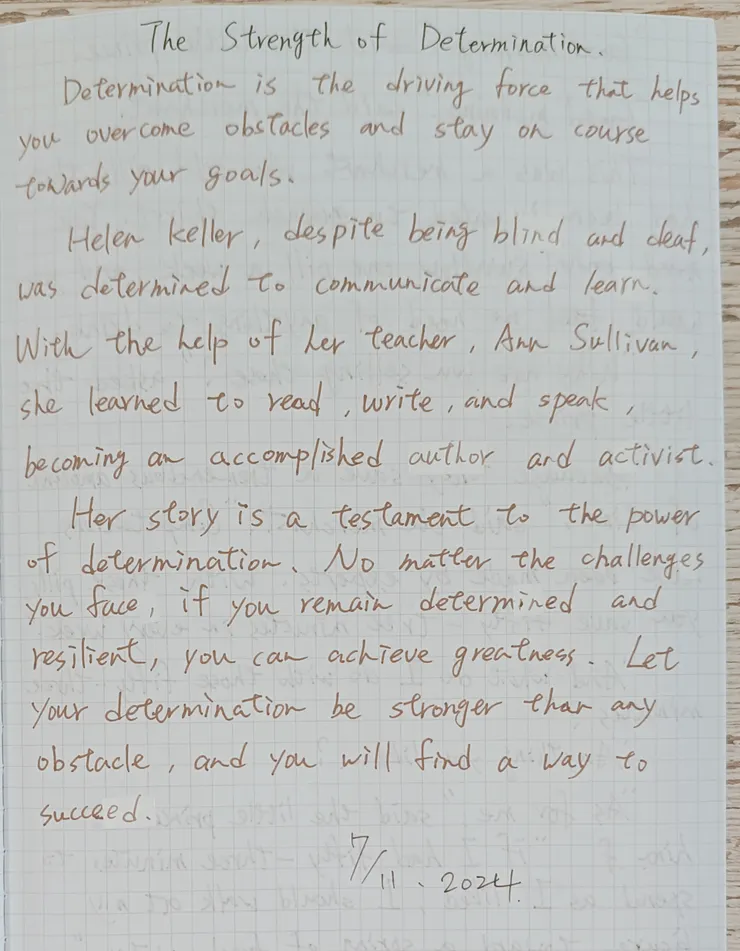 The Strength of Determination.
Determination is the driving force that helps
you overcome obstacles and stay on course
towards your goals.
Helen Keller, despite being blind and deaf,
was determined to communicate and learn.
With the help of her teacher, Ann Sullivan,
she learned to read, write, and speak,
becoming an accomplished author and activist.
Her story is a testament to the power
of determination. No matter the challenges
you face, if you remain determined and
resilient, you can achieve greatness. Let
your determination be stronger than any
obstacle, and you will find a way to
succeed.
7/11. 2024.